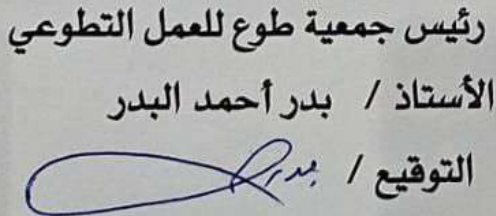 رئيس جمعية طوع للعمل التطوعي
الأستاذ / بدر أحمد البدر
التوقيع / بدر